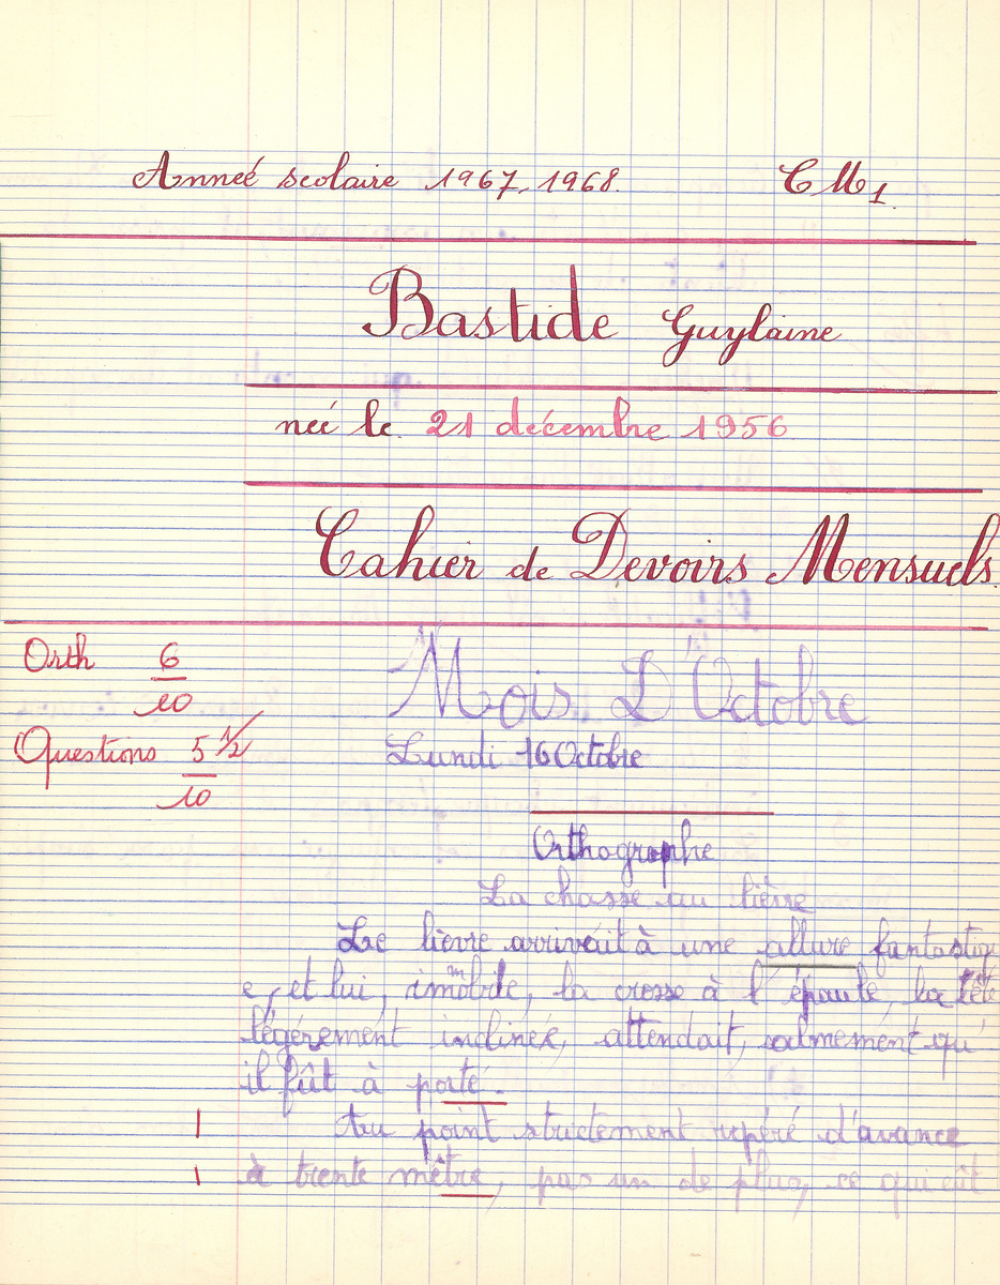 Anneé scolaire 1967-1968. CM1.
Bastide Guylaine
née le 21 décembre 1956
Cahier de Devoirs Mensuels.
Orth 6/10
Mois D'Octobre
Questions 5 1/2/10
Lundi 16 Octobre
Orthographe
La chasse au lièvre
Le lièvre arrivait à une allure fantastiqu
e, et lui, immobile, la crosse à l'épaule, la tête
légèrement inclinée, attendait, calmement qu'
il fût à porté.
Au point strictement repéré d'avance
à trente mètre, pas un de plus, ce qui eût